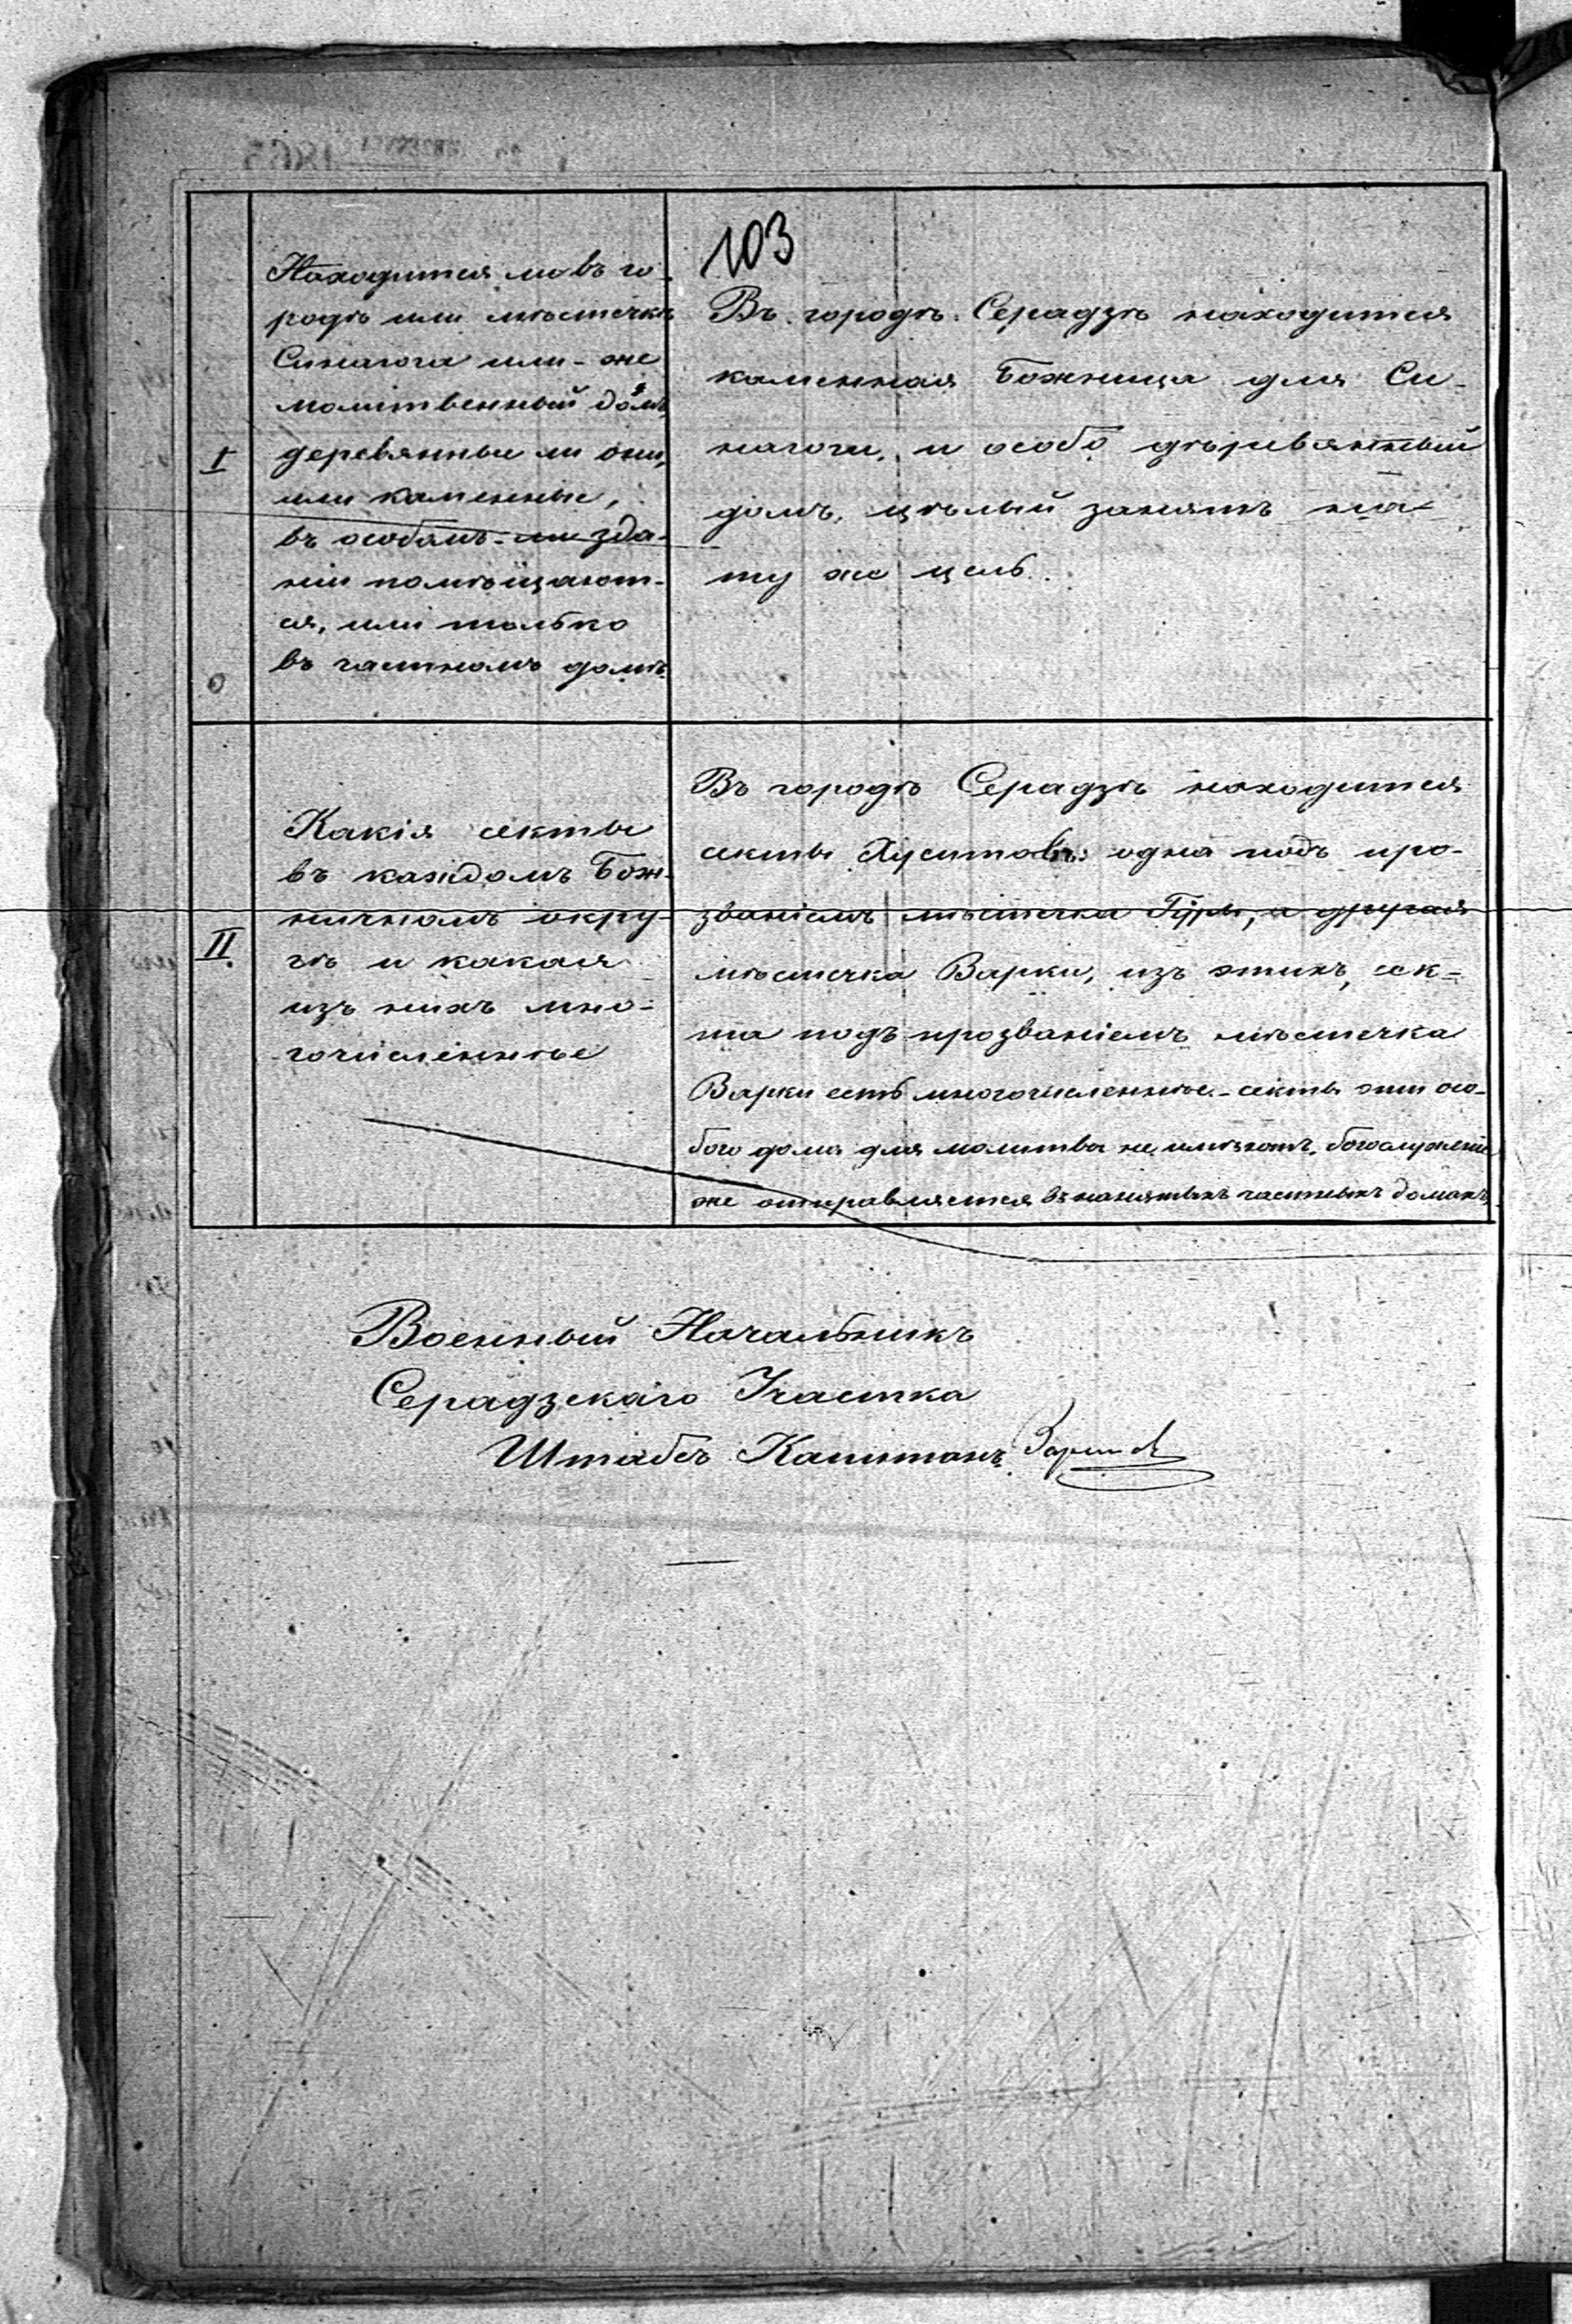 103
I
Находится ли въ го-
родѣ или мѣстечкѣ
Синагога или-же
молитвенный домъ,
деревянные ли они,
или каменные,
въ особомъ-ли зда-
нiи помѣщают-
ся, или только
въ частномъ домѣ.
Въ городѣ Серадзѣ находится
каменная Божница для Си-
нагоги, и особо дѣревянный
домъ, цѣлый занятъ на
ту же цель.
II.
Какiя секты
въ каждомъ Бож-
ничномъ окру-
гѣ и какая
изъ нихъ мно-
гочисленнѣе
Въ городѣ Серадзѣ находится
секты Хуситовъ: одна подъ про-
званiемъ мѣстечка Гуры, а другая
мѣстечка Варки, изъ этихъ, сек-
та подъ прозванiемъ мѣстечка
Варки есть многочисленнѣе-секты эти осо-
бого дома для молитвы не имѣютъ, богослуженiе
же отправляется въ нанятыхъ частныхъ домахъ.
Военный Начальникъ
Серадзскаго Участка
Штабсъ Капитанъ